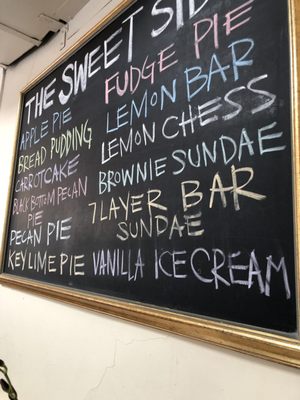 THE SWEET SID
APPLE PIE
BREAD PUDDING
CARROTCAKE
BLACK BOTTOM PECAN
PIE
PECAN PIE
KEY LIME PIE
FUDGE PIE
LEMON BAR
LEMON CHESS
BROWNIE SUNDAE
7 LAYER BAR
SUNDAE
VANILLA ICE CREAM